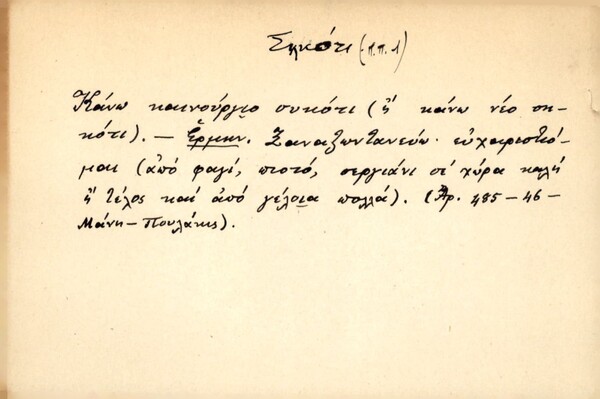 Σηκότι (-π.π. 1)
Κάνω καινούργιο συκότι (ἤ κάνω νέο ση-
κότι). — Ἑρμην. Ξαναζωντανεύω· εὐχαριστιό-
μαι (ἀπό φαγί, πιοτό, σεργιάνι σέ χώρα καλή
ἤ τέλος καί ἀπό γέλοια πολλά). (Ἀρ. 485 – 46 –
Μάνη – Πουλάκις).